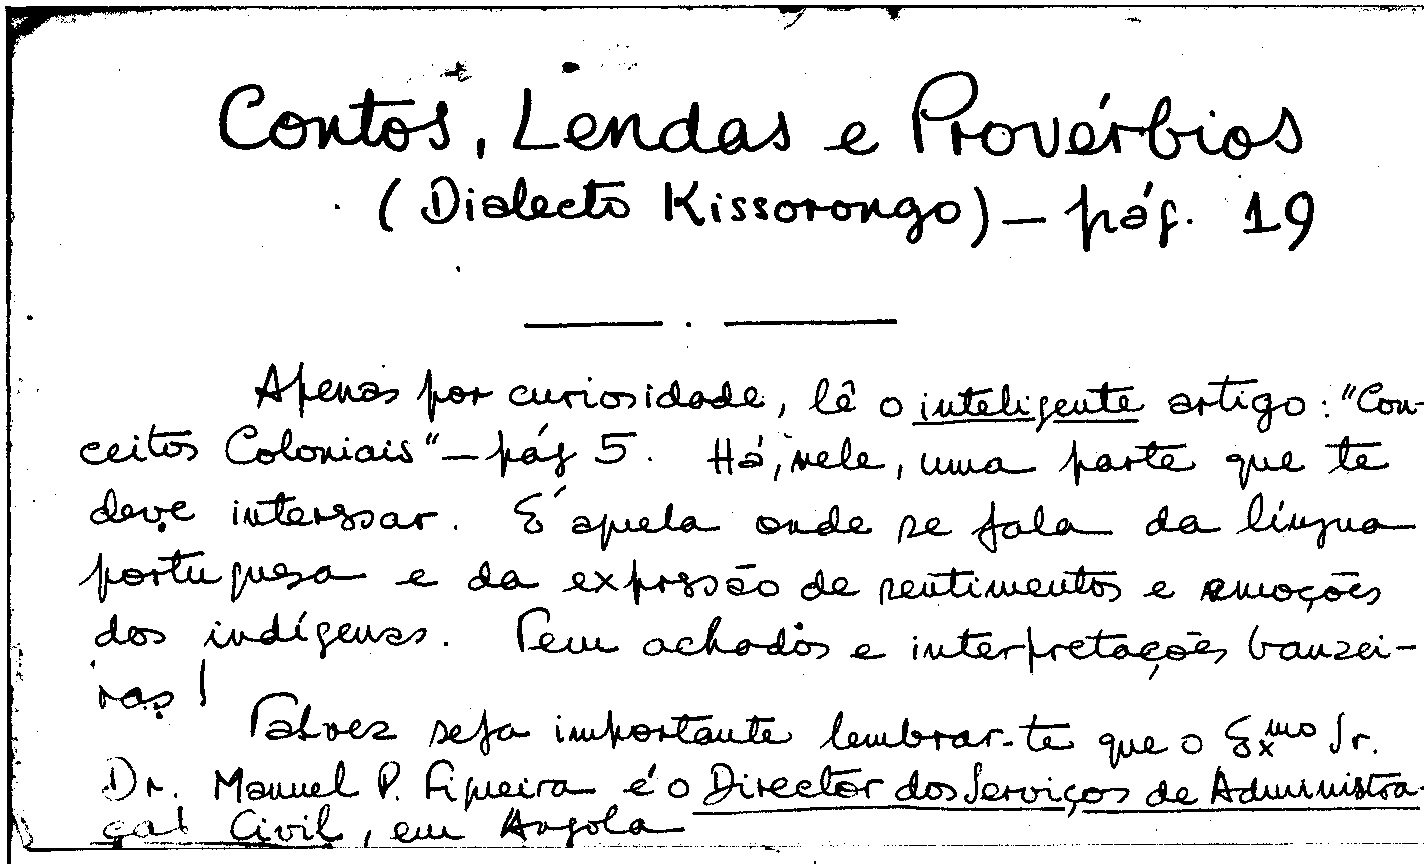 Contos, Lendas e Provérbios
(Dialecto Kissorongo) — pág. 19
Apenas por curiosidade, lê o inteligente artigo: "Con-
ceitos Coloniais" — pág 5. Há, nele, uma parte que te
deve interessar. É aquela onde se fala da língua
portuguesa e da expressão de sentimentos e emoções
dos indígenas. Tem achados e interpretações banzei-
ras!
Talvez seja importante lembrar-te que o Exmo Sr.
Dr. Manuel P. Figueira é o Director dos Serviços de Administra-
çal Civil, em Angola